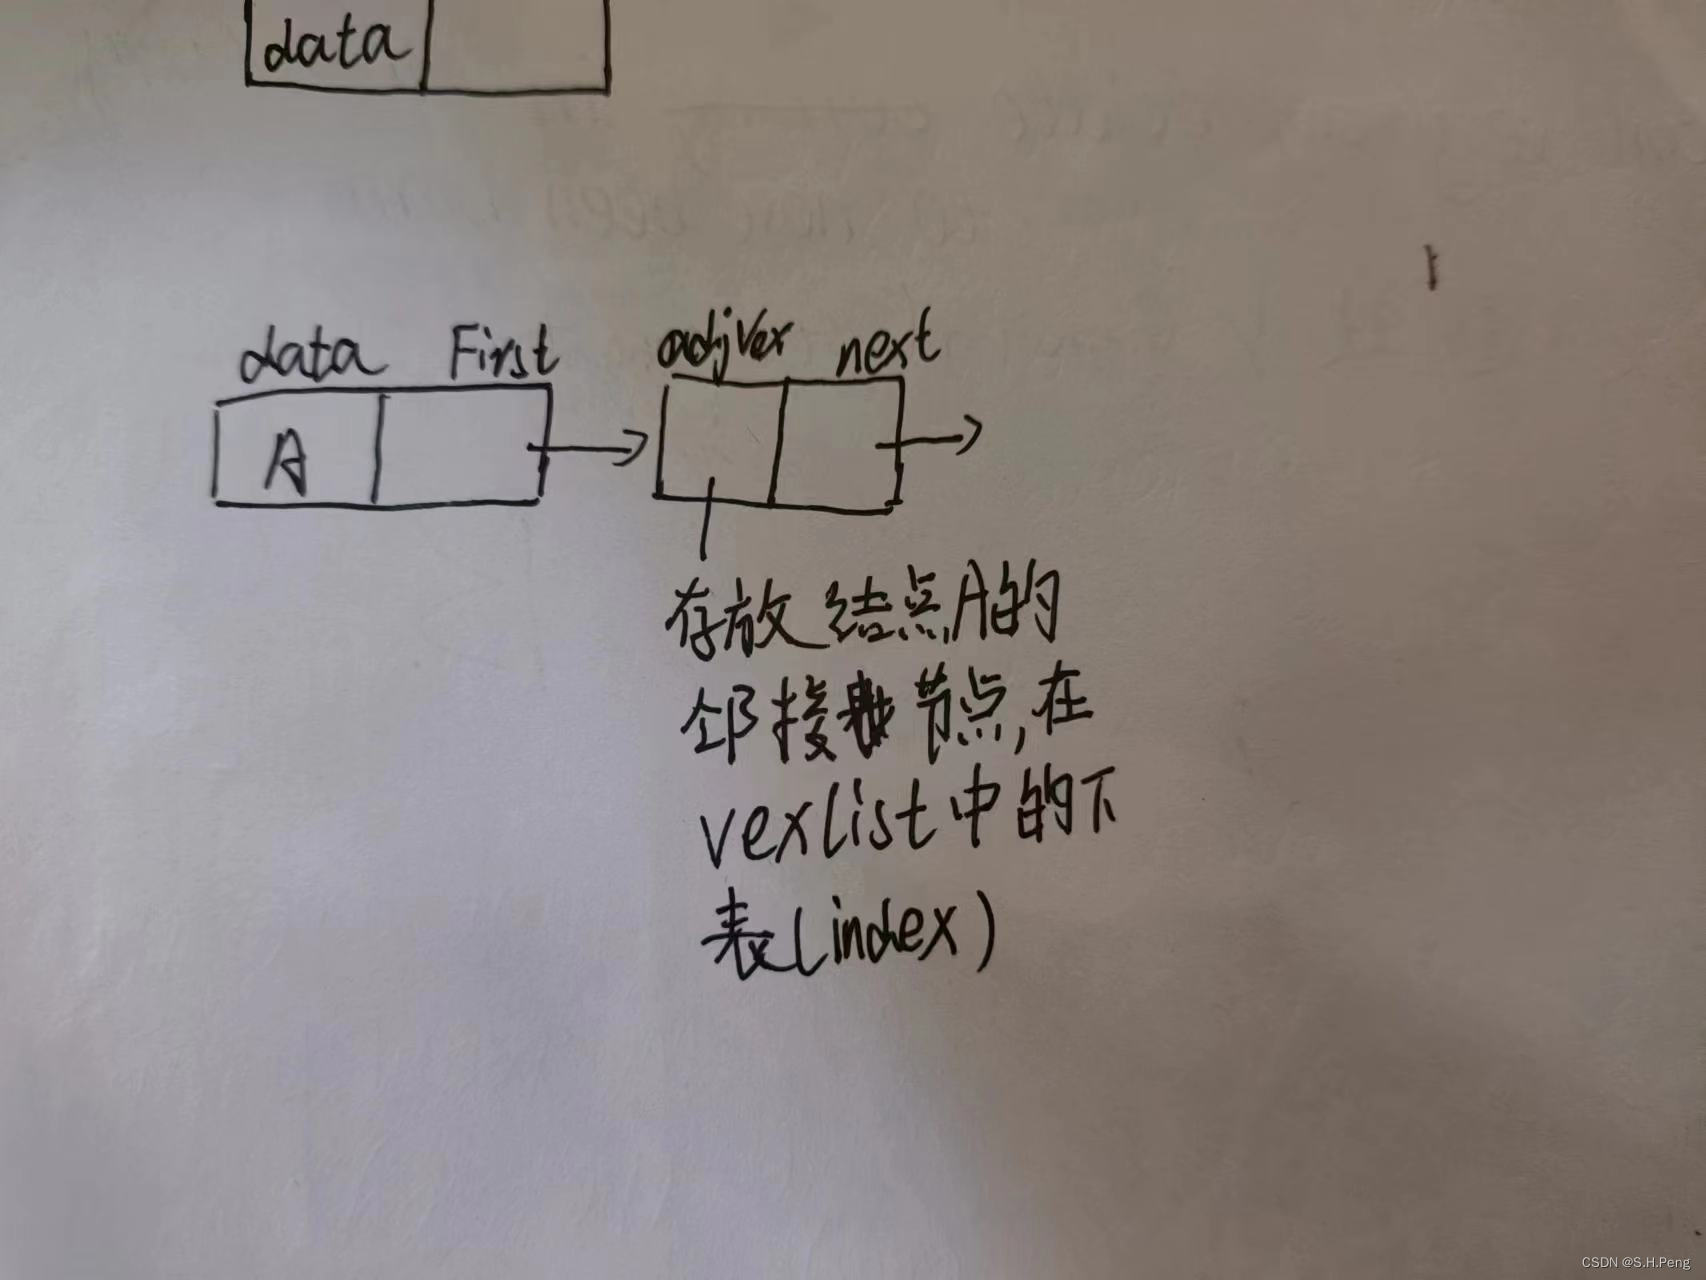 data
data First adjVex next
A
存放结点A的
邻接节点,在
vexlist中的下
表(index)
CSDN @S.H.Peng